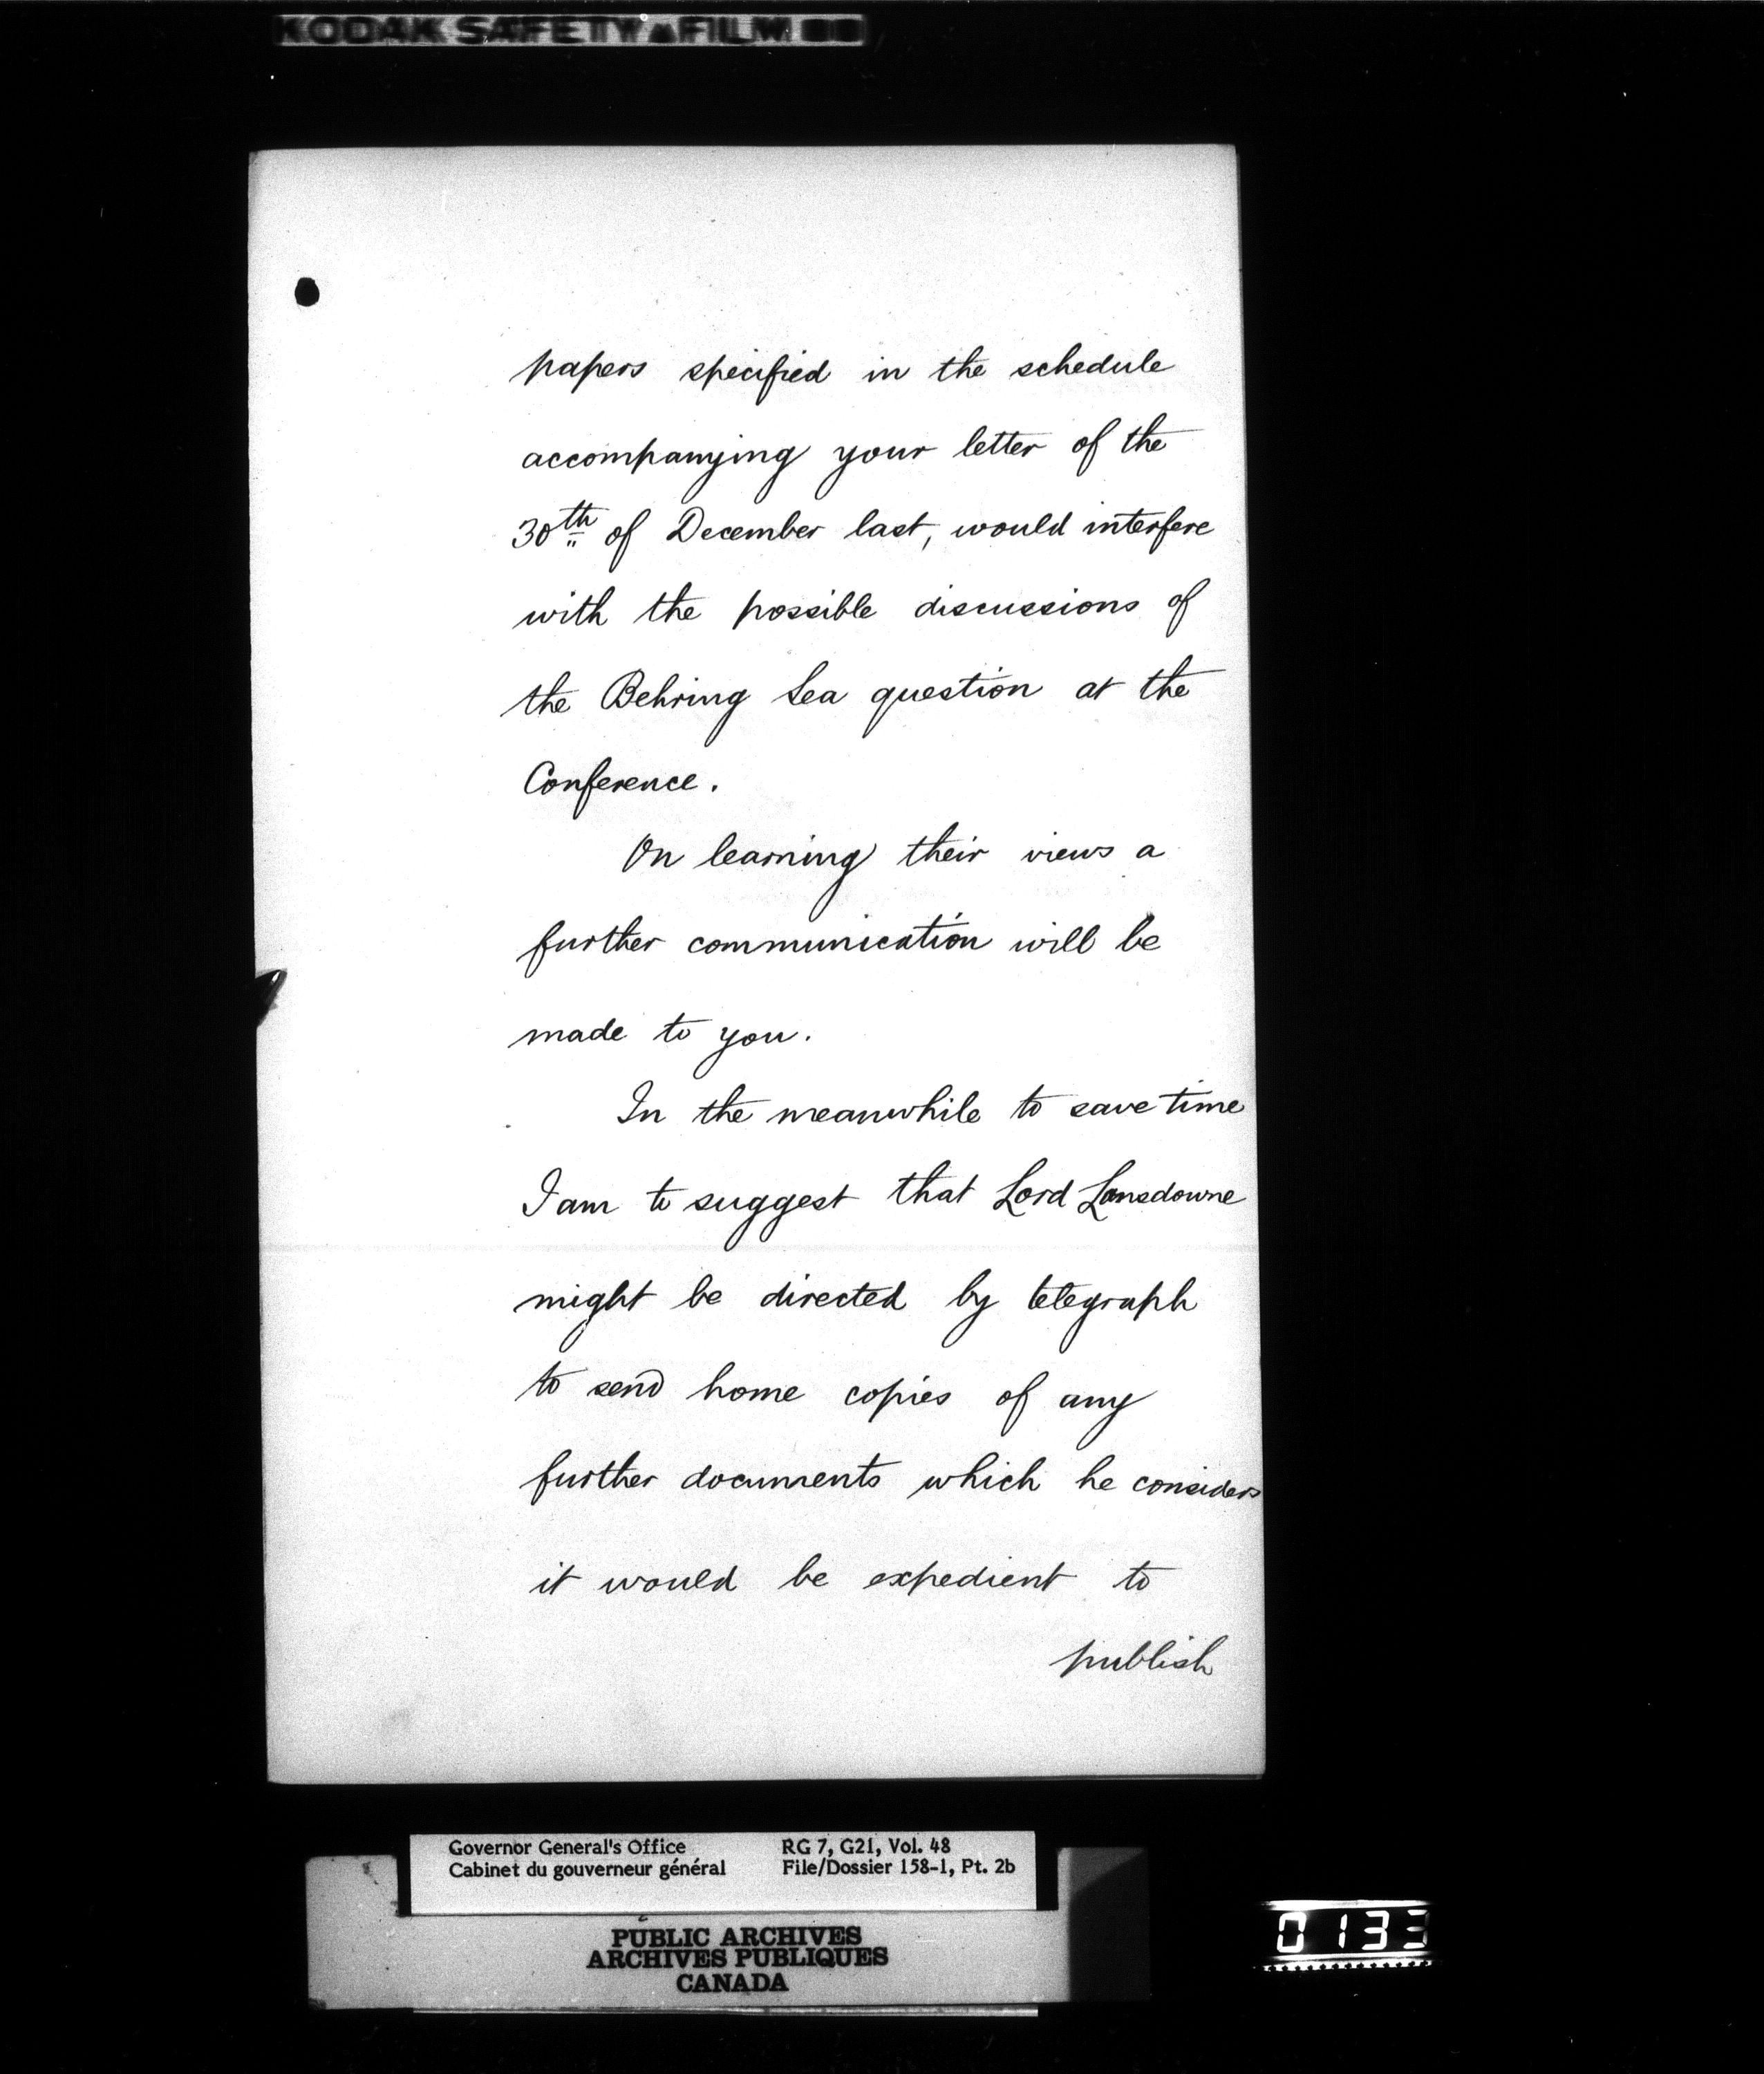 KODAK SAFETY FILM
papers specified in the schedule
accompanying your letter of the
30th of December last, would interfere
with the possible discussions of
the Behring Sea question at the
Conference.
On learning their views a
further communication will be
made to you.
In the meanwhile to save time
I am to suggest that Lord Lansdowne
might be directed by telegraph
to send home copies of any
further documents which he considers
it would be expedient to
publish
Governor General's Office RG 7, G21, Vol. 48
Cabinet du gouverneur général File/Dossier 158-1, Pt. 2b
PUBLIC ARCHIVES
ARCHIVES PUBLIQUES
CANADA
0133